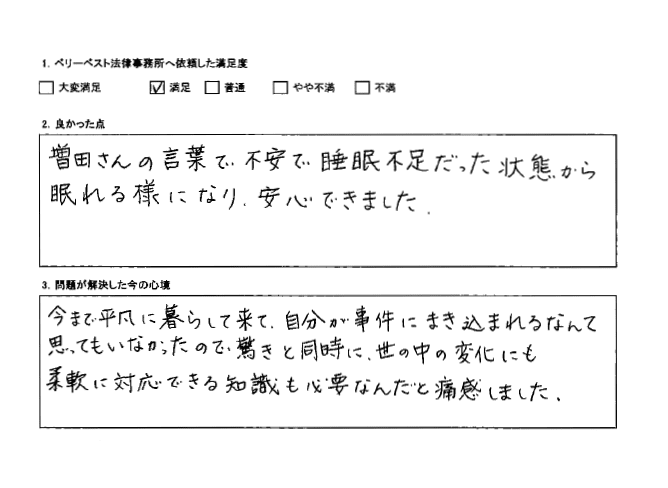 1. ベリーベスト法律事務所へ依頼した満足度
□ 大変満足 ☑ 満足 □ 普通 □ やや不満 □ 不満
2. 良かった点
増田さんの言葉で、不安で睡眠不足だった状態から
眠れる様になり、安心できました.
3. 問題が解決した今の心境
今まで平凡に暮らして来て、自分が事件にまき込まれるなんて
思ってもいなかったので、驚きと同時に、世の中の変化にも
柔軟に対応できる知識も必要なんだと痛感しました.